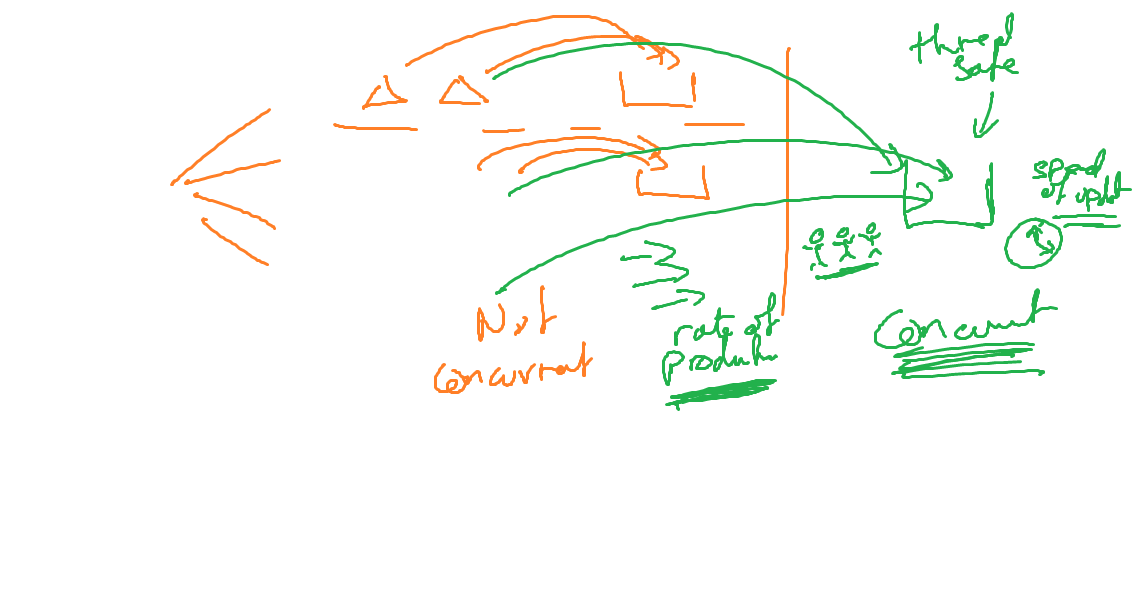 thread
safe
speed
of updat
Not
concurrent
rate of
Concurrent